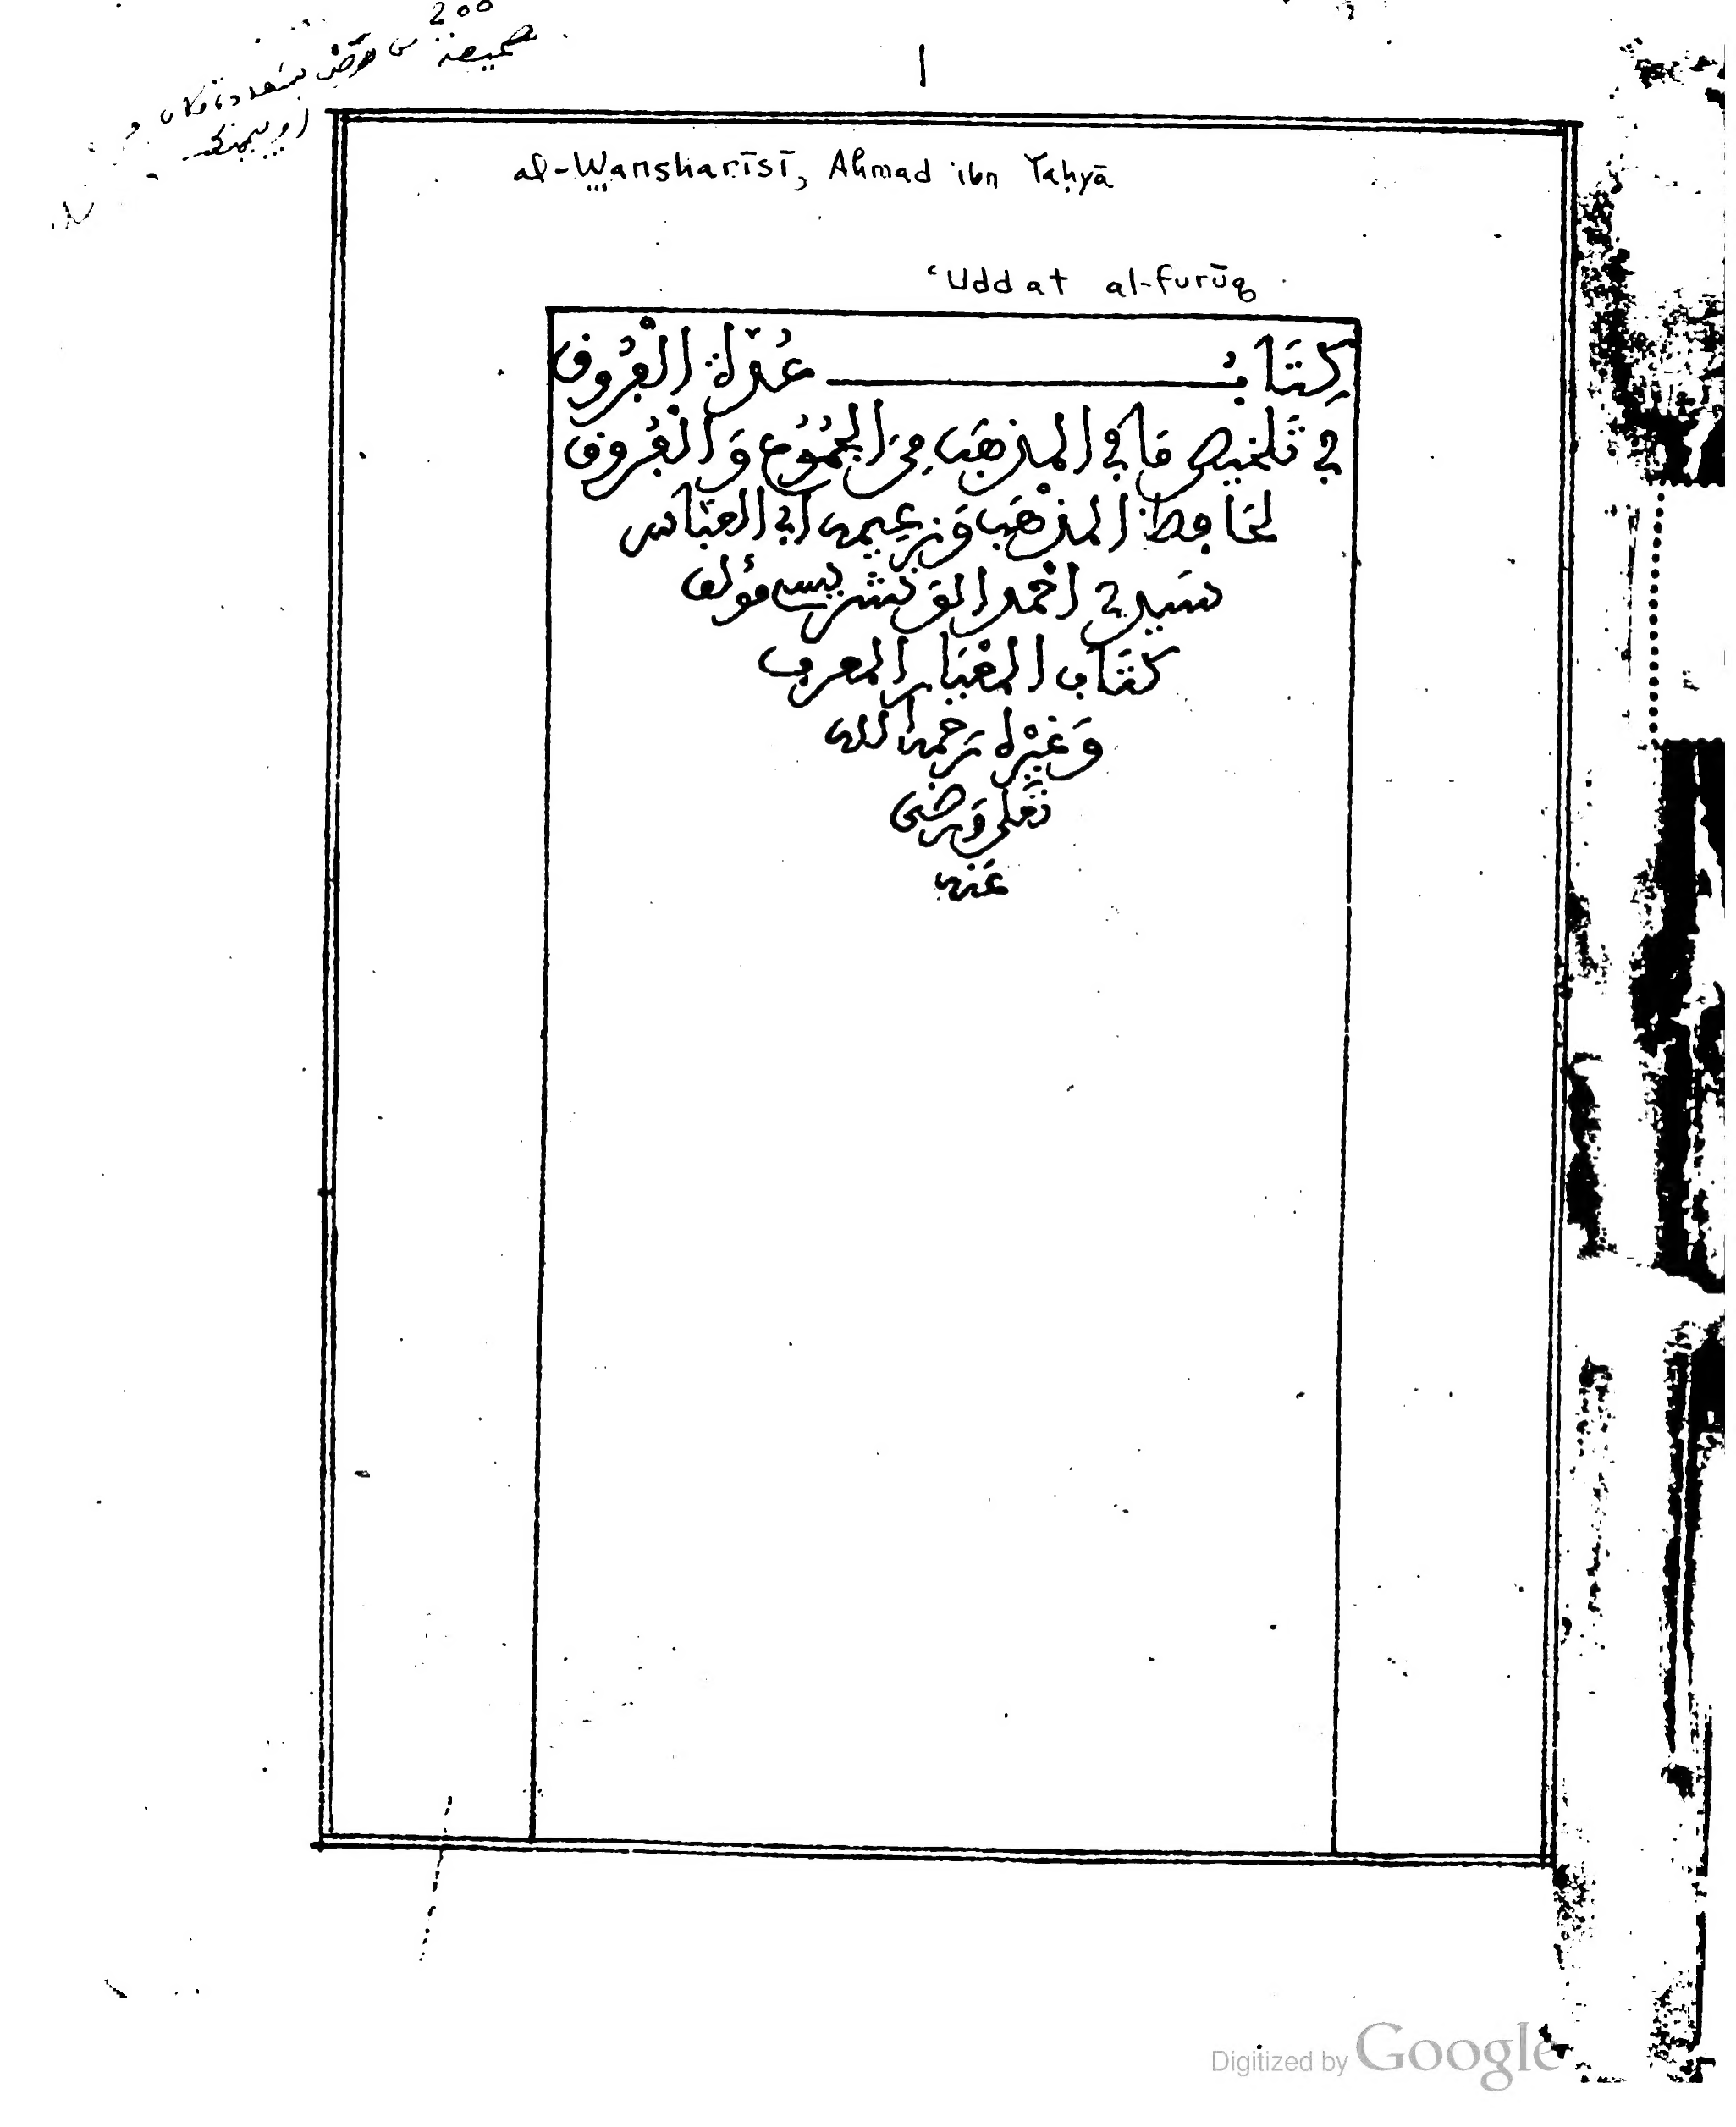 200
1
al-Wansharīsī, Ahmad ibn Yaḥyā
ʿUddat al-furūq
كِتَابُ عُدّة الْفُرُوق
في تَلخيص مَا في المذهَب مِنَ الجُمُوع وَالْفُرُوق
لحَافظ المذْهَب وَزعِيمه أبي العبّاس
سَيدي أحْمد الوَنشريسي مؤلف
كتَاب المعْيَار المعرب
وَغيْره رَحمه الله
تعَلى وَرضى
عَنه
Digitized by Google